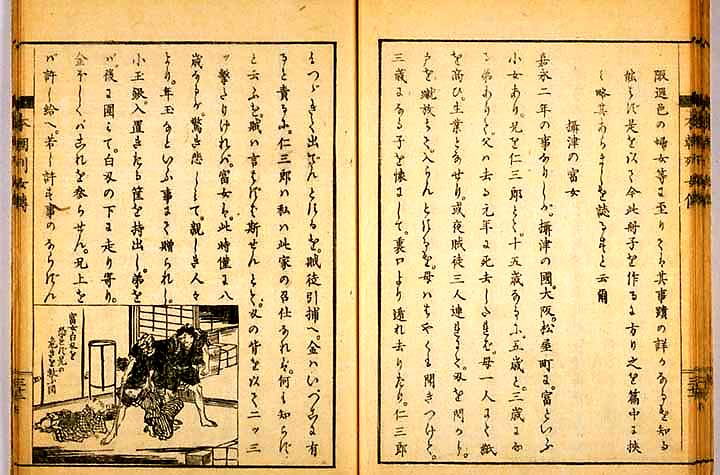 陬遐邑の婦女等に至りてハ其事蹟の詳かなるを知る
能はず是を以て今此冊子を作るに方り之を篇中に挾
み略其あらましを誌るすと云爾
攝津の富女
嘉永二年の事なりしが。攝津の國。大阪。松屋町に。富といふ
小女あり。兄を仁三郎とて。十五歳なるに。五歳と。三歳にな
る弟ありて。父ハ去る元年に死去したれバ。母一人にて紙
を商ひ。生業となせり。或夜賊徒三人連にて。刄を閃めかし
戸を蹴放ちて。入らんとしたるを。母ハはやくも聞きつけて。
三歳になる子を懐にして。裏口より遁れ去りたり。仁三郎
もつゞきて出でんとしたるを。賊徒引捕へ。金ハいづこに有
ると責るに。仁三郎ハ私ハ此家の召仕なれバ。何も知らず
と云ふを。賊ハ言はずバ斯せんとて。刄の背を以て二ッ三
ッ撃たりけれバ。富女ハ。此時僅に八
歳なりしが。驚き悲しみて。親しき人々
より。年玉なりといふ事にて贈られし。
小玉銀。入置きたる筐を持出し。弟を
バ後に圍こて。白刄の下に走り寄り。
金ほしくバこれを参らせん。兄上を
バ許し給へ。若し許す事のならずん
富女白刄を
恐れず兄の
危きを救ふ図
本朝列女傳